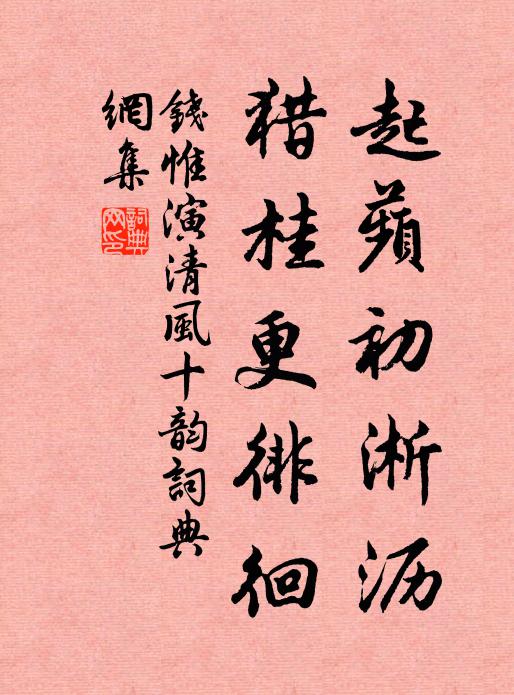 起蘋初淅沥
猎桂更徘徊
錢惟演清風十韵詞典
網集
詞典网印